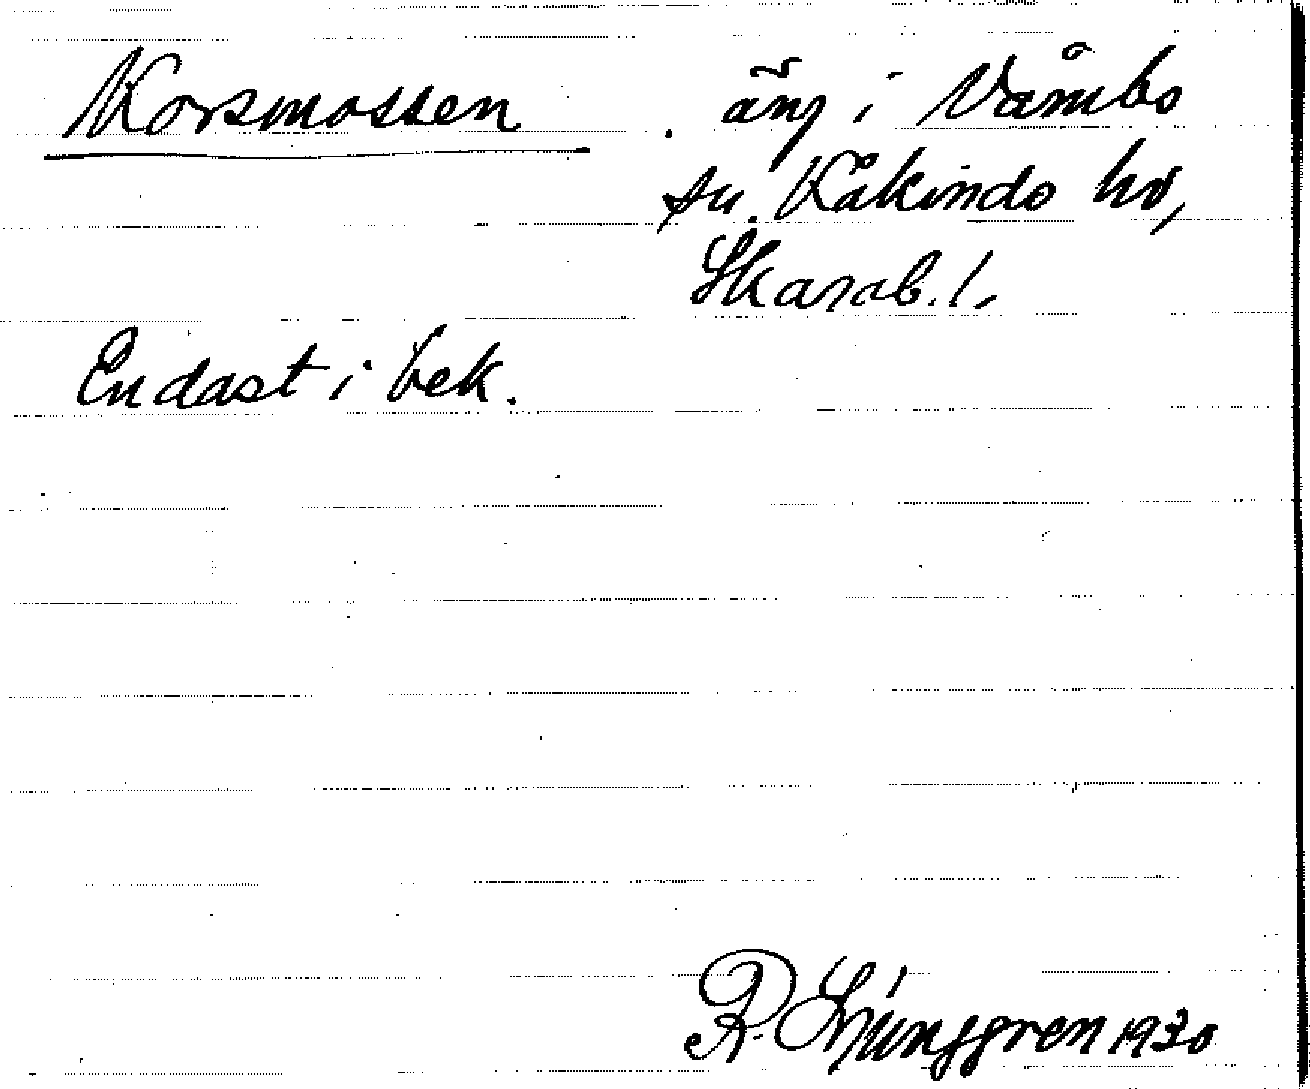 Korsmossen äng i Våmbs
sn. Kåkinds hd,
Skarab. l.
Endast i bek.
R. Ljunggren 1930